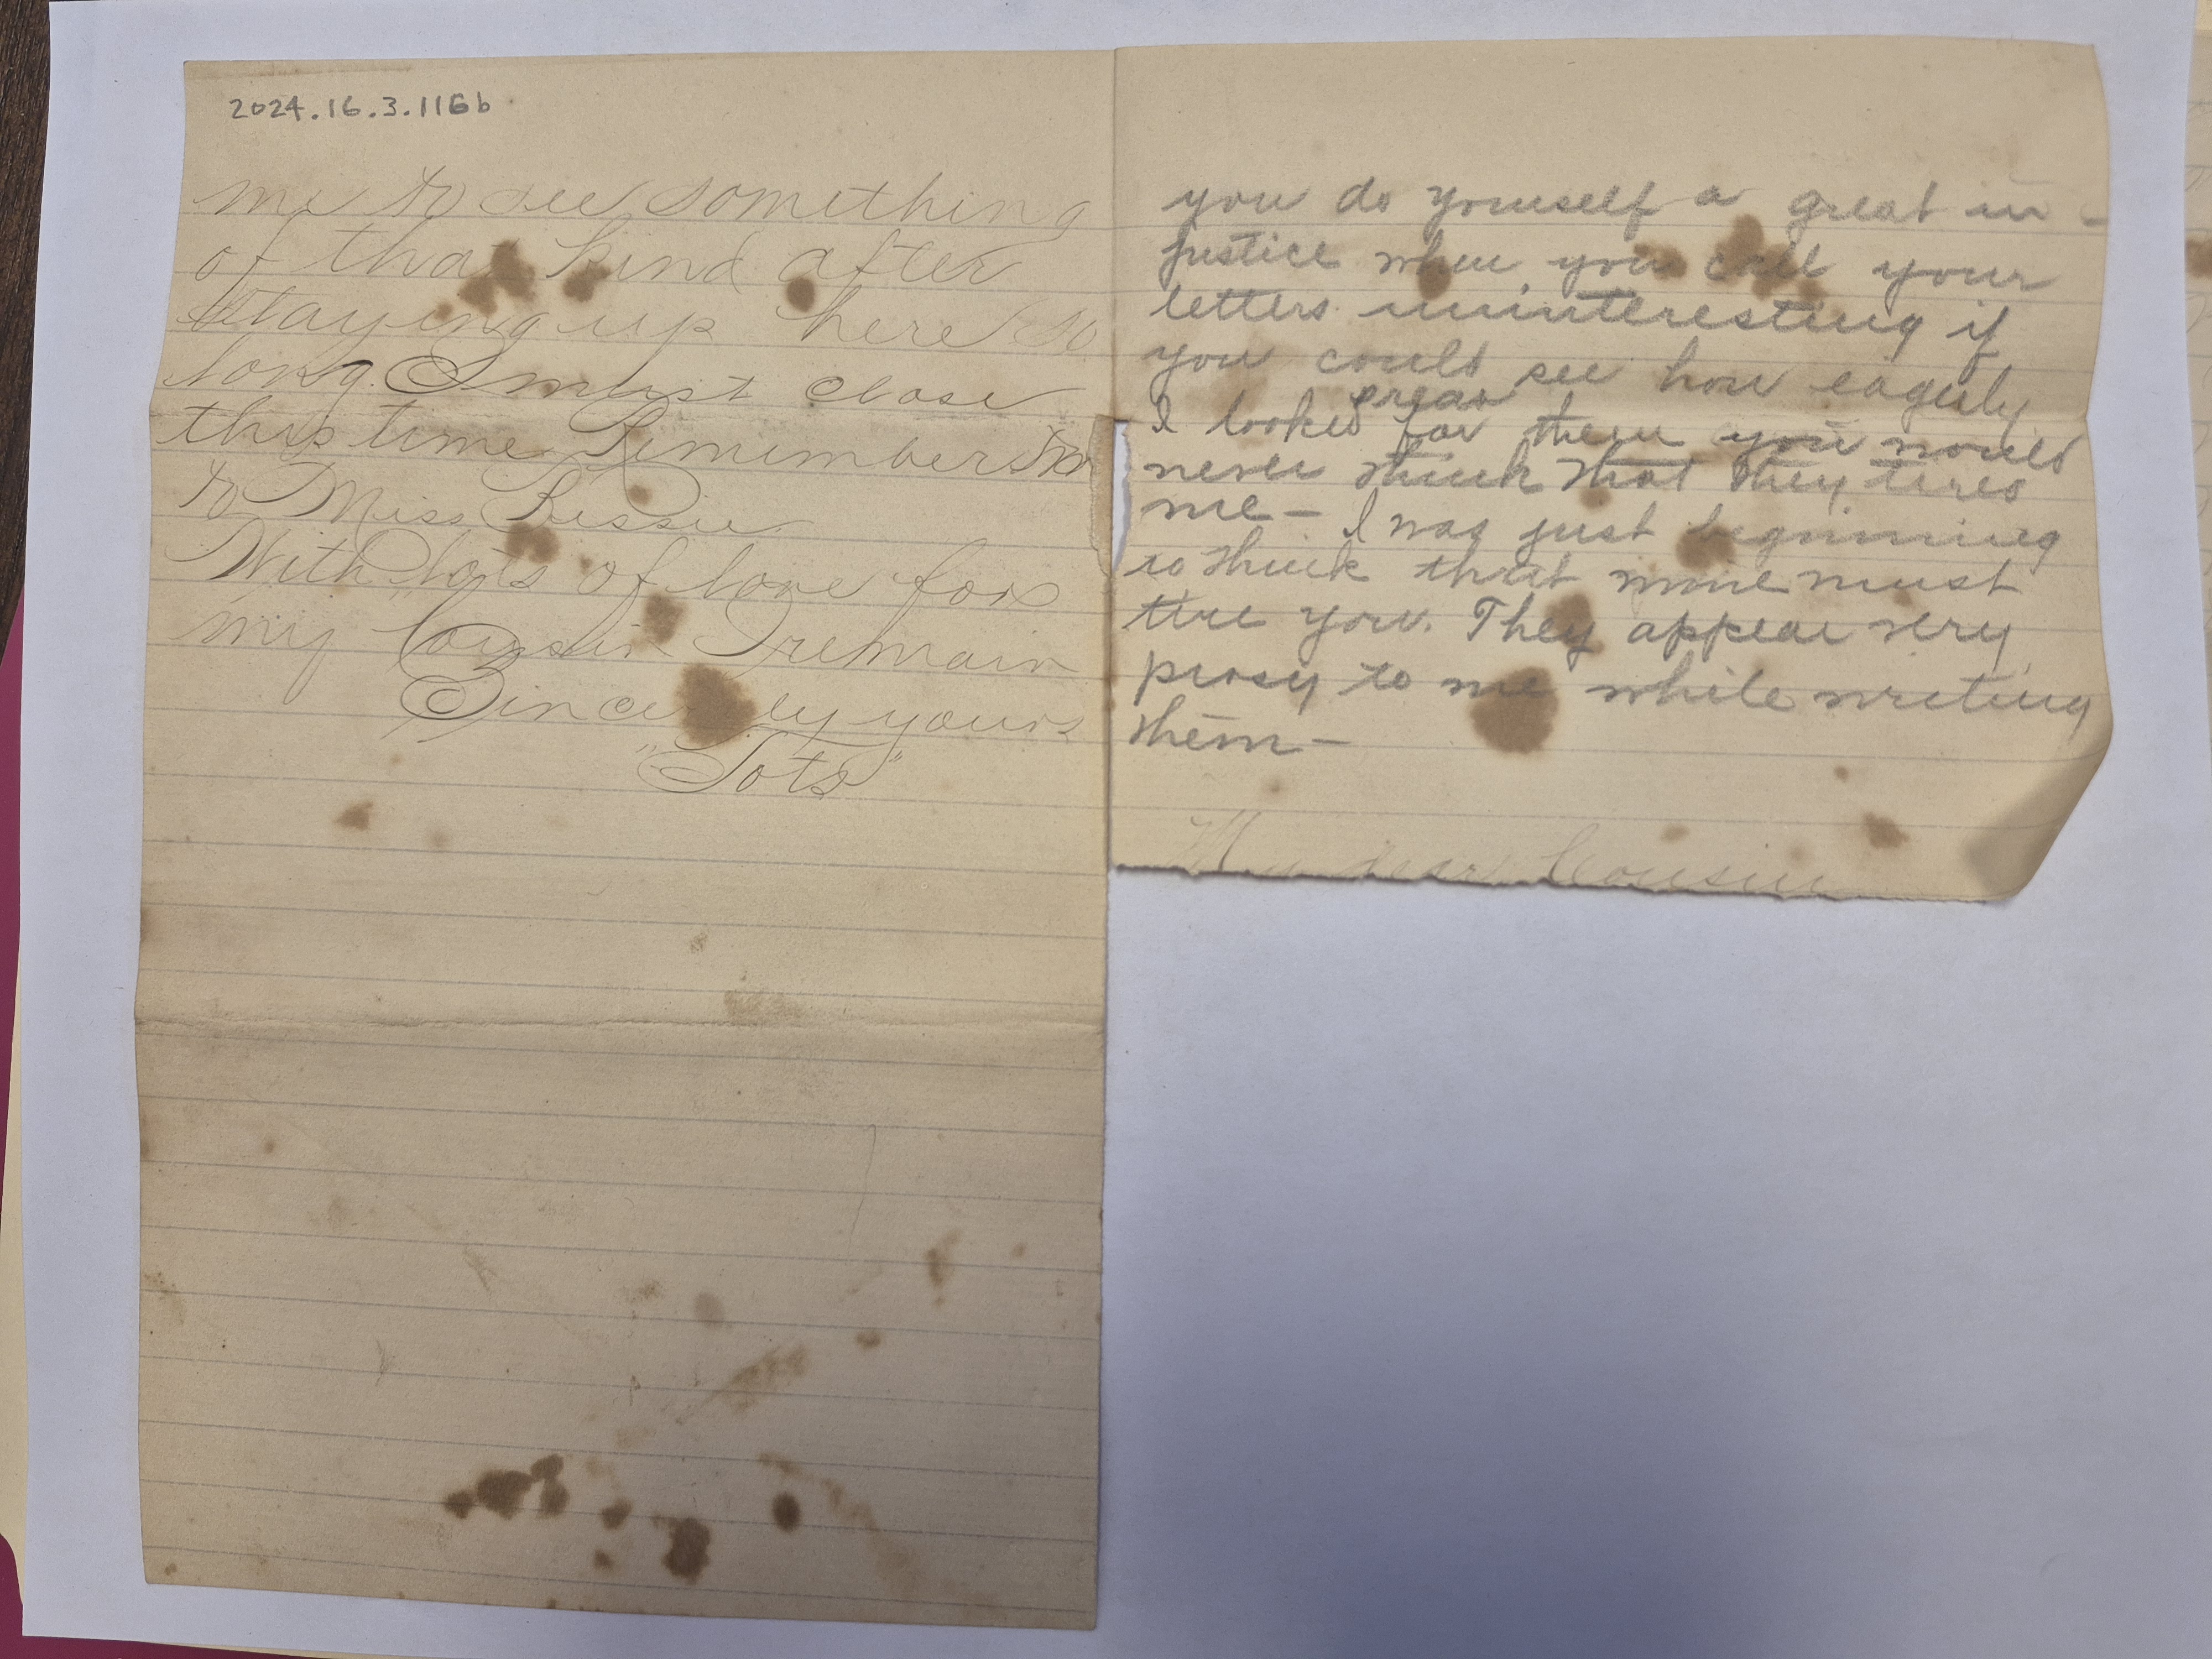 2024.16.3.116b
me to see something
of that kind after
staying up here so
long. I must close
this time Remember me
to Miss Bessie
With lots of love for
my Cousin I remain
Sincerely yours
"Tots"
you do yourself a great in-
justice when you call your
letters uninteresting if
you could see how eagerly
I looked for them you would
never think that they tired
me - I was just beginning
to think that mine must
tire you. They appear very
prosy to me while writing
them -
My dear Cousin